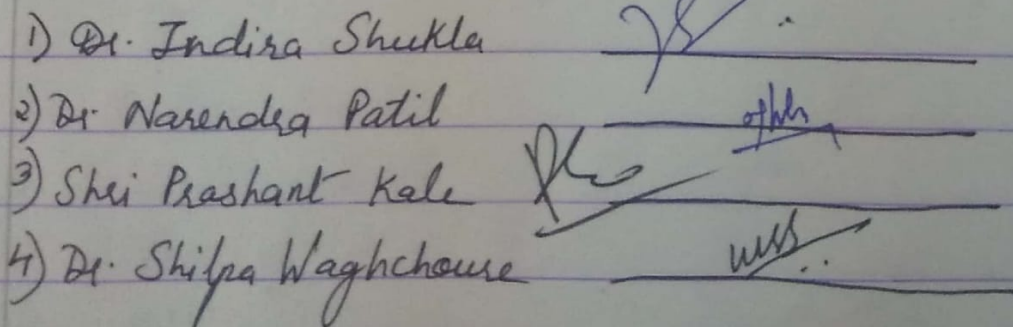 1) Dr. Indira Shukla
2) Dr. Narendra Patil
3) Shri Prashant Kale
4) Dr. Shilpa Waghchoure